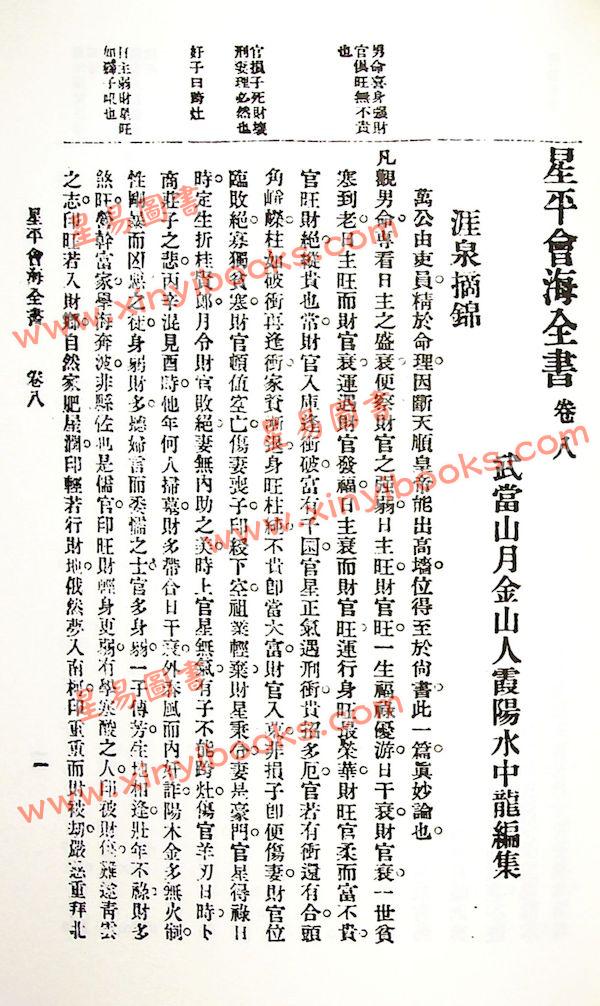 星平會海全書 卷八
武當山月金山人霞陽水中龍編集
涯泉摘錦
萬公由吏員精於命理因斷天順皇帝能出高墻位得至於尚書此一篇眞妙論也
男命喜身强財
官俱旺無不貴
也
凡觀男命專看日主之盛衰便察財官之强弱日主旺財官旺一生福祿優游日干衰財官衰一世貧
寒到老日主旺而財官衰運遇財官發福日主衰而財官旺運行身旺最榮華財旺官柔而富不貴
官旺財絕縱貴也常財官入庫逢衝破富有千囷官星正氣遇刑衝貴招多厄官若有衝還有合頭
官損子死財壞
刑妻理必然也
角崢嶸柱如破衝再逢衝家資漸身旺柱純不貴卽當大富財官入非損子卽便傷妻財官位
臨敗絕寡獨貧寒財官頓値空亡傷妻喪子印綬下空祖業輕棄財星乘合妻是豪門官星得祿日
好子曰跨灶
時定生折桂賢郎月令財官敗絕妻無內助之美時上官星無氣有子不能跨灶傷官羊刃日時卜
商莊子之悲丙辛混見酉時他年何人掃墓財多帶合日干衰外風而內奸詐陽木金多無火制
日主弱財星旺
如獨子也
性剛暴而凶惡之徒身弱財多聽婦言而柔懦之士官多身弱一子傳芳生地相逢壯年不祿財多
煞旺營幹富家學海奔波非縣佐也是儒官印旺財輕身更弱有學寒酸之人印被財傷難遂靑雲
之志印旺若入財鄉自然家肥屋潤印輕若行財地俄然夢入南柯印重重而被劫嚴慈重拜北
星平會海全書 卷八 一
星易圖書
www.xinyibooks.com
星易圖書
www.xinyibooks.com
星易圖書
www.xinyibooks.com
星易圖書
www.xinyibooks.com